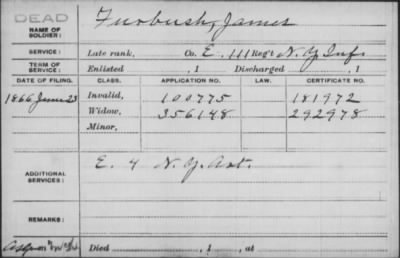 DEAD
NAME OF SOLDIER: Furbush, James
SERVICE: Late rank, Co. E, 111 Reg't N. Y. Inf.
TERM OF SERVICE: Enlisted , 1 Discharged , 1
DATE OF FILING. CLASS. APPLICATION NO. LAW. CERTIFICATE NO.
1866 June 23 Invalid, 100775 181972
Widow, 356148 292978
Minor,
ADDITIONAL SERVICES: E. 4 N. Y. Art.
REMARKS:
Died , 1 , at